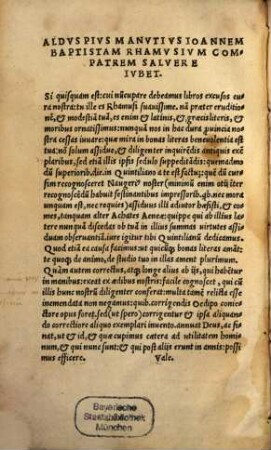 ALDVS PIVS MANVTIVS IOANNEM
BAPTISTAM RHAMVSIVM COM⸗
PATREM SALVERE
IVBET.
Si quisquam est: cui nũcupare debeamus libros excusos cu
ra nostra: tu ille es Rhamusi suauissime. nã præter eruditio
nẽ, & modestiã tuã, es enim & latinis, & græcis literis, &
moribus ornatissimus: nunquã nos in hac dura puincia no
stra cessas iuuare: quæ mira in bonas literas beneuolentia est
tua: nõ solum assidue, & diligenter inquirẽdis antiquis exẽ
plaribus, sed etã illis ipsis sedulo suppeditãdis: quemadmo
dũ superiorib. dieb. in Quintiliano a te est factũ: quẽ dũ cur⸗
sim recognosceret Naugeriꝰ noster (minimũ enim ociũ iter
recognoscẽdũ habuit festinantibus impressorib. ab, nec mora
unquam est, nec requies) assiduus illi adiutor adfuisti, & co⸗
mes, tanquam alter Achates Aeneæ: quippe qui ab illius la⸗
tere nunquam discedas ob tuã in illum summas uirtutes assi
duam obseruantiã. iure igitur tibi Quintilianũ dedicamus.
Quod etiã ea causa fecimus: ut quicũq; bonas literas amãt:
te q̃; quoq; de animo, de studio tuo in illas ament plurimum.
Quãm autem correctus, atq; longe alius ab ijs, qui habẽtur
in manibus: exeat ex ædibus nostris: facile cognoscet, qui cũ
illis hunc nostrũ diligenter conferat: multa tamẽ relicta esse
inemendata non negamus: quib. corrigendis Oedipo coniec⸗
tore opus foret. sed (ut spero) corrigentur & ipsa aliquan⸗
do correctiore aliquo exemplari inuento. annuat Deus, ac fi⸗
nat, ut & id, & quæ cupimus cætera ad utilitatem homi⸗
num, & qui nunc sunt: & qui post alijs erunt in annis: possi
mus efficere. Vale.
Bayerische
Staatsbibliothek
München